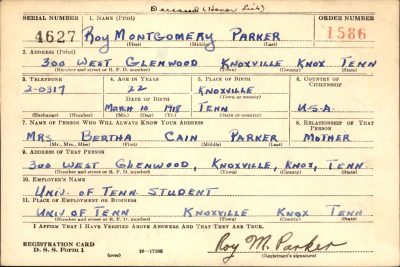 Deceased (Honor List)
SERIAL NUMBER 1. NAME (Print) ORDER NUMBER
4627 Roy MONTGOMERY PARKER 1586
(First) (Middle) (Last)
2. ADDRESS (Print)
300 WEST GLENWOOD KNOXVILLE KNOX TENN
(Number and street or R. F. D. number) (Town) (County) (State)
3. TELEPHONE 4. AGE IN YEARS 5. PLACE OF BIRTH 6. COUNTRY OF CITIZENSHIP
2-0317 22 KNOXVILLE
DATE OF BIRTH (Town or county)
MARCH 10 1918 TENN U.S.A.
(Exchange) (Number) (Mo.) (Day) (Yr.) (State or country)
7. NAME OF PERSON WHO WILL ALWAYS KNOW YOUR ADDRESS 8. RELATIONSHIP OF THAT PERSON
MRS. BERTHA CAIN PARKER MOTHER
(Mr., Mrs., Miss) (First) (Middle) (Last)
9. ADDRESS OF THAT PERSON
300 WEST GLENWOOD, KNOXVILLE, KNOX, TENN.
(Number and street or R. F. D. number) (Town) (County) (State)
10. EMPLOYER'S NAME
UNIV. OF TENN. STUDENT
11. PLACE OF EMPLOYMENT OR BUSINESS
UNIV OF TENN KNOXVILLE KNOX TENN
(Number and street or R. F. D. number) (Town) (County) (State)
I AFFIRM THAT I HAVE VERIFIED ABOVE ANSWERS AND THAT THEY ARE TRUE.
REGISTRATION CARD
D. S. S. Form 1 16-17105 Roy M. Parker
(over) (Registrant's signature)